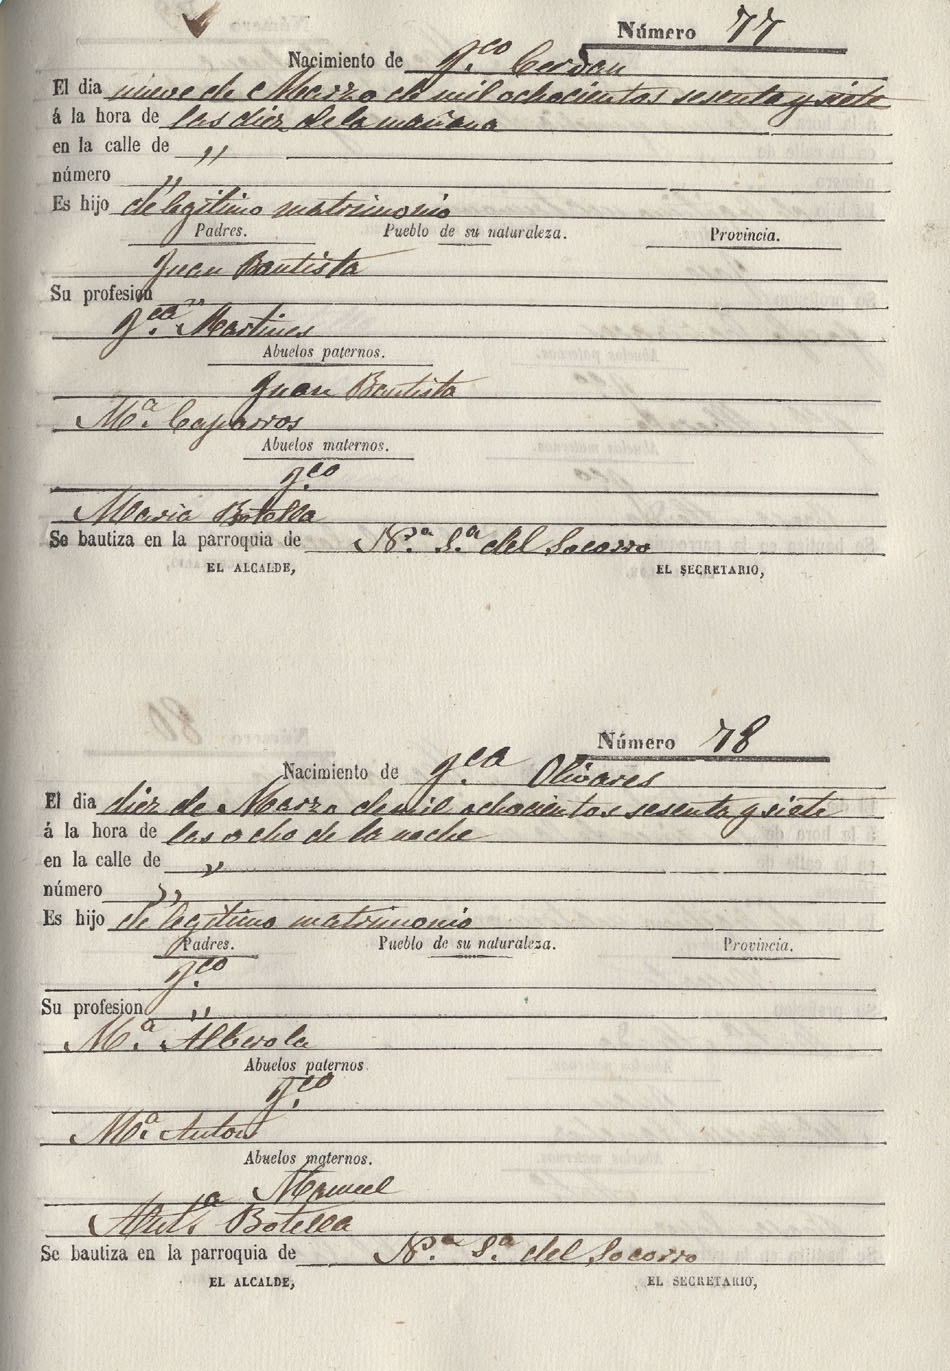 Número 77
Nacimiento de F.co Cerdan
El dia nueve de Marzo de mil ochocientos sesenta y siete
á la hora de las diez de la mañana
en la calle de ,,
número ,,
Es hijo de legitimo matrimonio
Padres. Pueblo de su naturaleza. Provincia.
Juan Bautista
Su profesion ,,
F.ca Martines
Abuelos paternos.
Juan Bautista
M.a Caparros
Abuelos maternos.
F.co
Maria Botella
Se bautiza en la parroquia de N.a S.a del Socorro
EL ALCALDE, EL SECRETARIO,
Número 78
Nacimiento de F.ca Olivares
El dia diez de Marzo de mil ochocientos sesenta y siete
á la hora de las ocho de la noche
en la calle de ,,
número ,,
Es hijo de legitimo matrimonio
Padres. Pueblo de su naturaleza. Provincia.
F.co
Su profesion ,,
M.a Alberola
Abuelos paternos.
F.co
M.a Anton
Abuelos maternos.
Manuel
Botella
Se bautiza en la parroquia de N.a S.a del Socorro
EL ALCALDE, EL SECRETARIO,